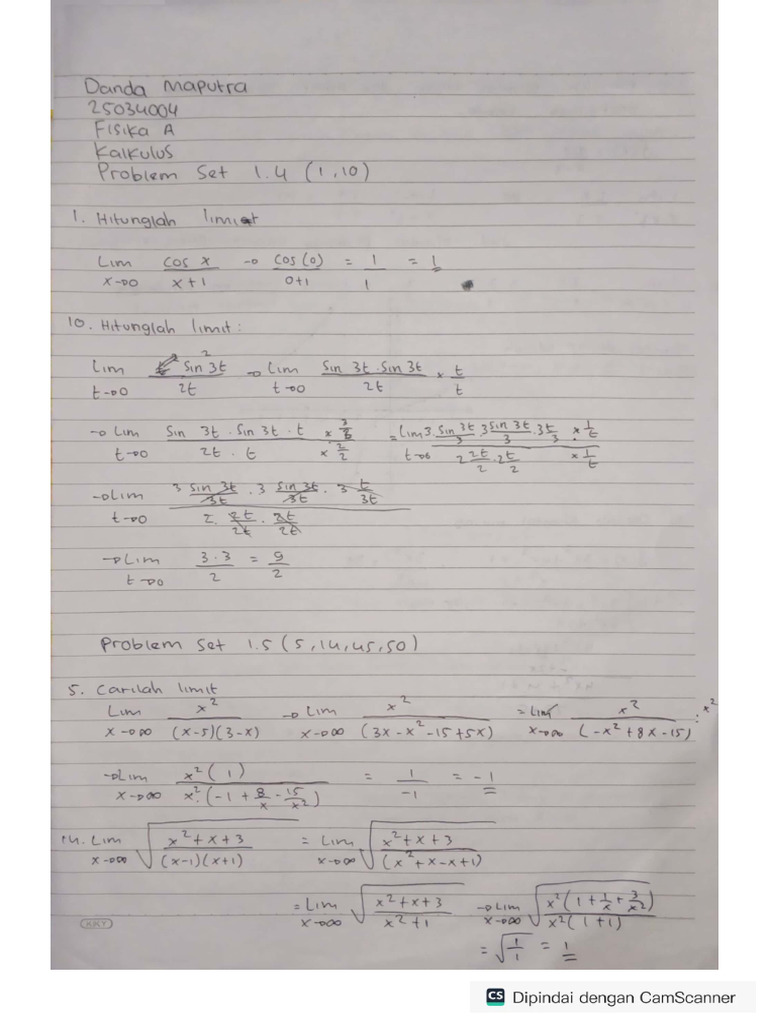 Danda Maputra
25034004
Fisika A
Kalkulus
Problem Set 1.4 (1,10)
1. Hitunglah limit
Lim x→0 cos x / x+1 → cos(0) / 0+1 = 1/1 = 1
10. Hitunglah limit:
Lim t→0 sin² 3t / 2t → Lim t→0 sin 3t . sin 3t / 2t × t/t
→ Lim t→0 sin 3t . sin 3t . t / 2t . t × 2/2 = Lim t→0 3 . sin 3t / 3 . 3 sin 3t / 3 . 3t / 3 × 1/t / 2 2t/2 . 2t/2 × 1/t
→ Lim t→0 3 sin 3t / 3t . 3 sin 3t / 3t . 3 t / 3t / 2 . 2t/2t . 2t/2t
→ Lim t→0 3 . 3 / 2 = 9/2
Problem Set 1.5 (5,14,45,50)
5. Carilah limit
Lim x→∞ x² / (x-5)(3-x) → Lim x→∞ x² / (3x - x² - 15 + 5x) = Lim x→∞ x² / (-x² + 8x - 15) : x²
→ Lim x→∞ x² (1) / x² (-1 + 8/x - 15/x²) = 1/-1 = -1
14. Lim x→∞ √ x² + x + 3 / (x-1)(x+1) = Lim x→∞ √ x² + x + 3 / (x² + x - x + 1)
= Lim x→∞ √ x² + x + 3 / x² + 1 → Lim x→∞ √ x² (1 + 1/x + 3/x²) / x² (1 + 1)
= √ 1/1 = 1
KKY
CS Dipindai dengan CamScanner